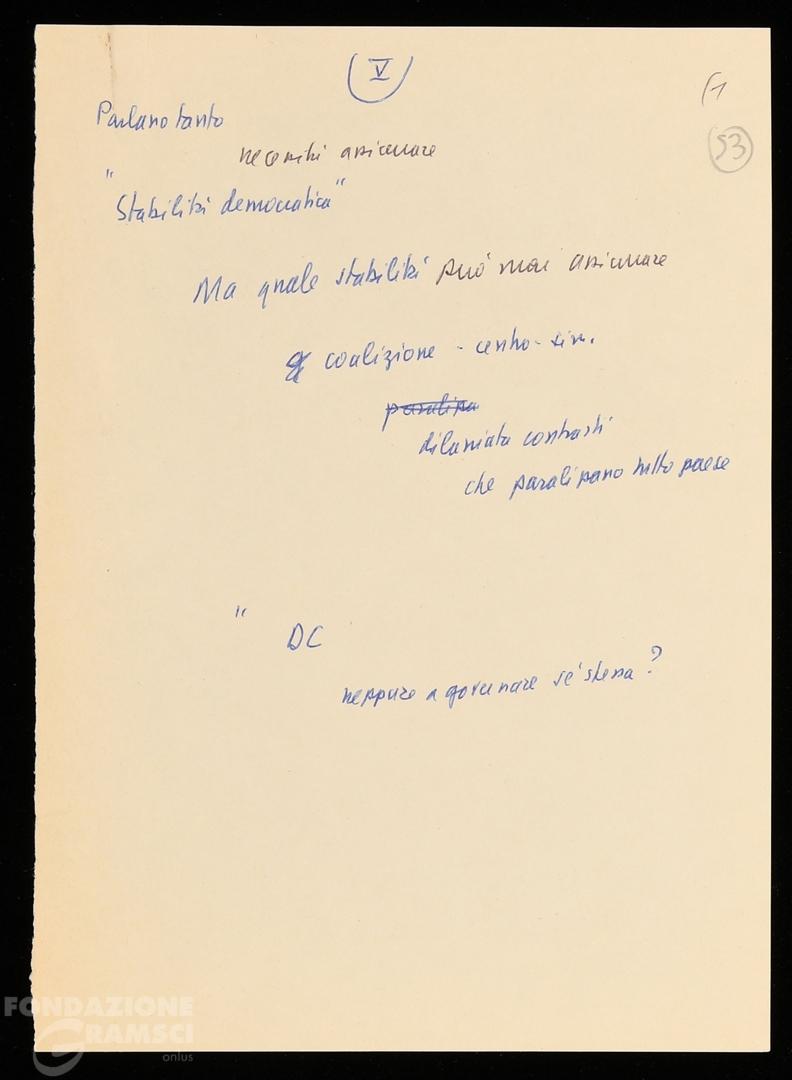 V
53
Parlano tanto
necessità assicurare
"Stabilità democratica"
Ma quale stabilità può mai assicurare
coalizione - centro - sin.
paralisa
dilaniata contrasti
che paralisano tutto paese
" DC
neppure a governare sé stessa?
FONDAZIONE
GRAMSCI
onlus